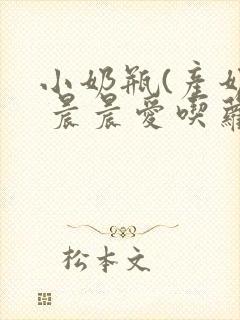 小奶瓶(產奶
晨晨愛喫蘿
松本文